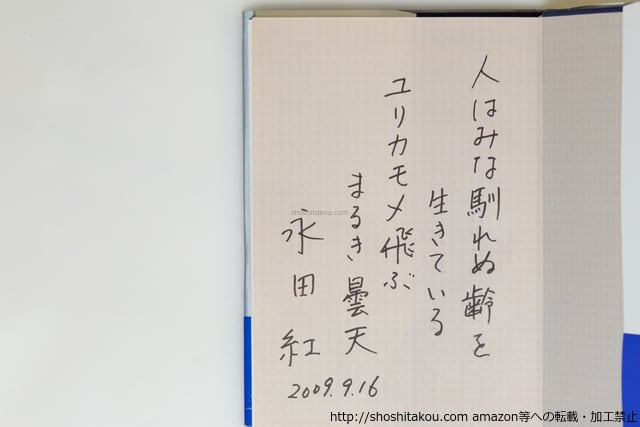 人はみな馴れぬ齢を
生きている
ユリカモメ飛ぶ
まるき曇天
永田 紅
2009.9.16
shoshitakou.com
http://shoshitakou.com amazon等への転載・加工禁止